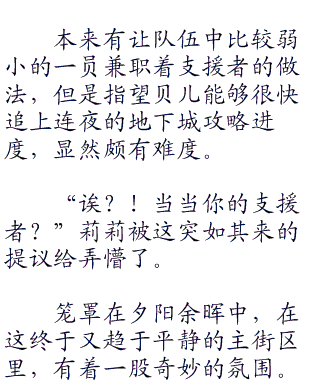 本来有让队伍中比较弱
小的一员兼职着支援者的做
法，但是指望贝儿能够很快
追上连夜的地下城攻略进
度，显然颇有难度。
“诶？！当当你的支援
者？”莉莉被这突如其来的
提议给弄懵了。
笼罩在夕阳余晖中，在
这终于又趋于平静的主街区
里，有着一股奇妙的氛围。